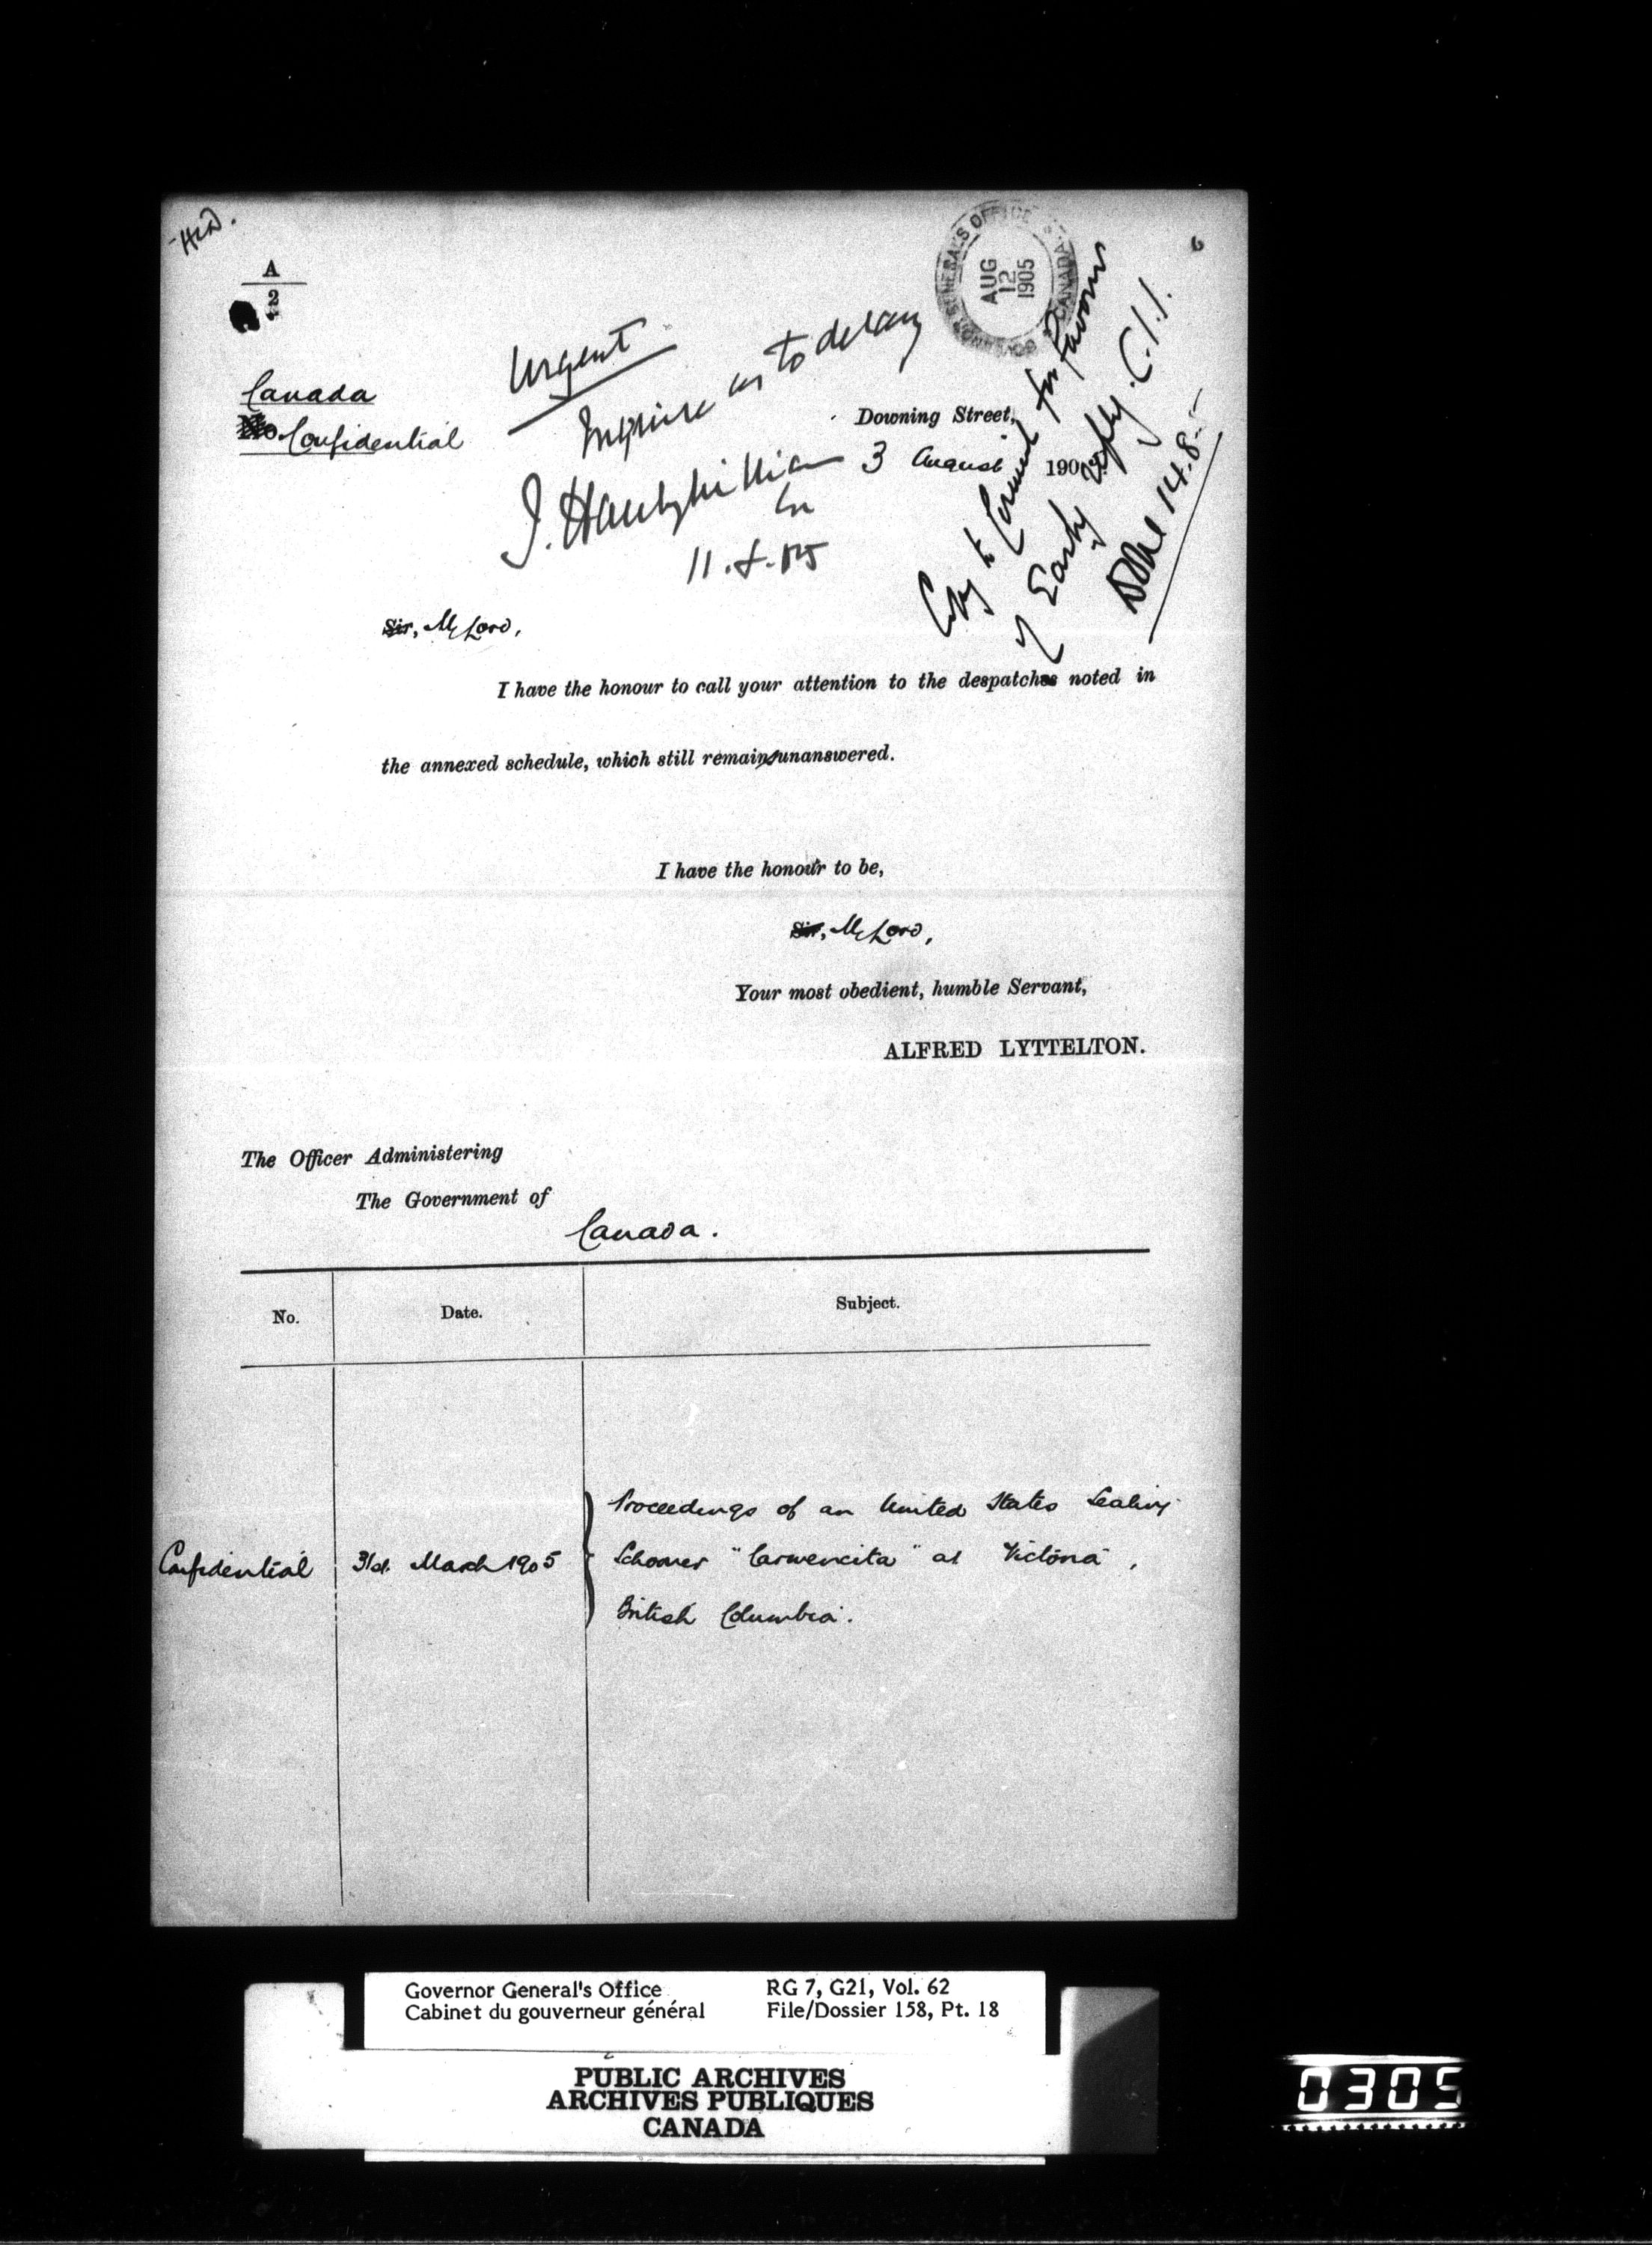 A
2
Canada
No. Confidential
Urgent
Inquire as to delay
11.8.05
GOVERNOR GENERAL'S OFFICE CANADA
AUG
12
1905
Copy to Council for favour
of Early reply. C.I.I.
Done 14.8.
Downing Street,
3 August 190
Sir, My Lord,
I have the honour to call your attention to the despatches noted in
the annexed schedule, which still remains unanswered.
I have the honour to be,
Sir, My Lord,
Your most obedient, humble Servant,
ALFRED LYTTELTON.
The Officer Administering
The Government of
Canada.
No. Date. Subject.
Confidential 31st March 1905
Proceedings of an United States Sealing
Schooner "Carmencita" at Victoria,
British Columbia.
Governor General's Office RG 7, G21, Vol. 62
Cabinet du gouverneur général File/Dossier 158, Pt. 18
PUBLIC ARCHIVES
ARCHIVES PUBLIQUES
CANADA
0305